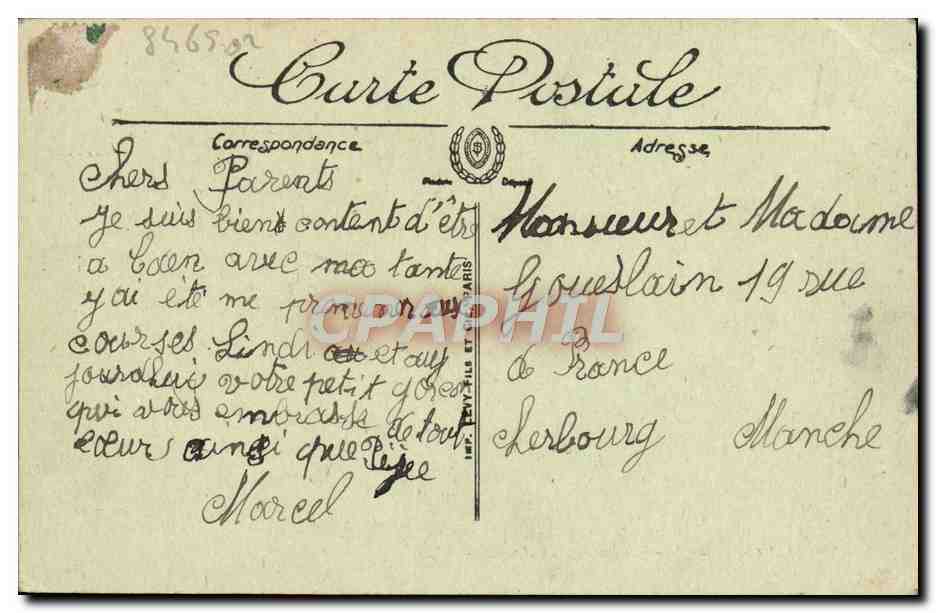 8465.02
Carte Postale
Correspondance
Adresse
Chers Parents
Je suis bient content d'être
a Caen avec ma tante
j'ai été me promener aus
courses Lindi et auj
jourdhui votre petit garçon
qui vous embrasse de tout
cœur ainsi que
Marcel
IMP. LEVY FILS ET CIE PARIS
Monsieur et Madame
Goueslain 19 rue
de France
Cherbourg Manche
CPAPHIL